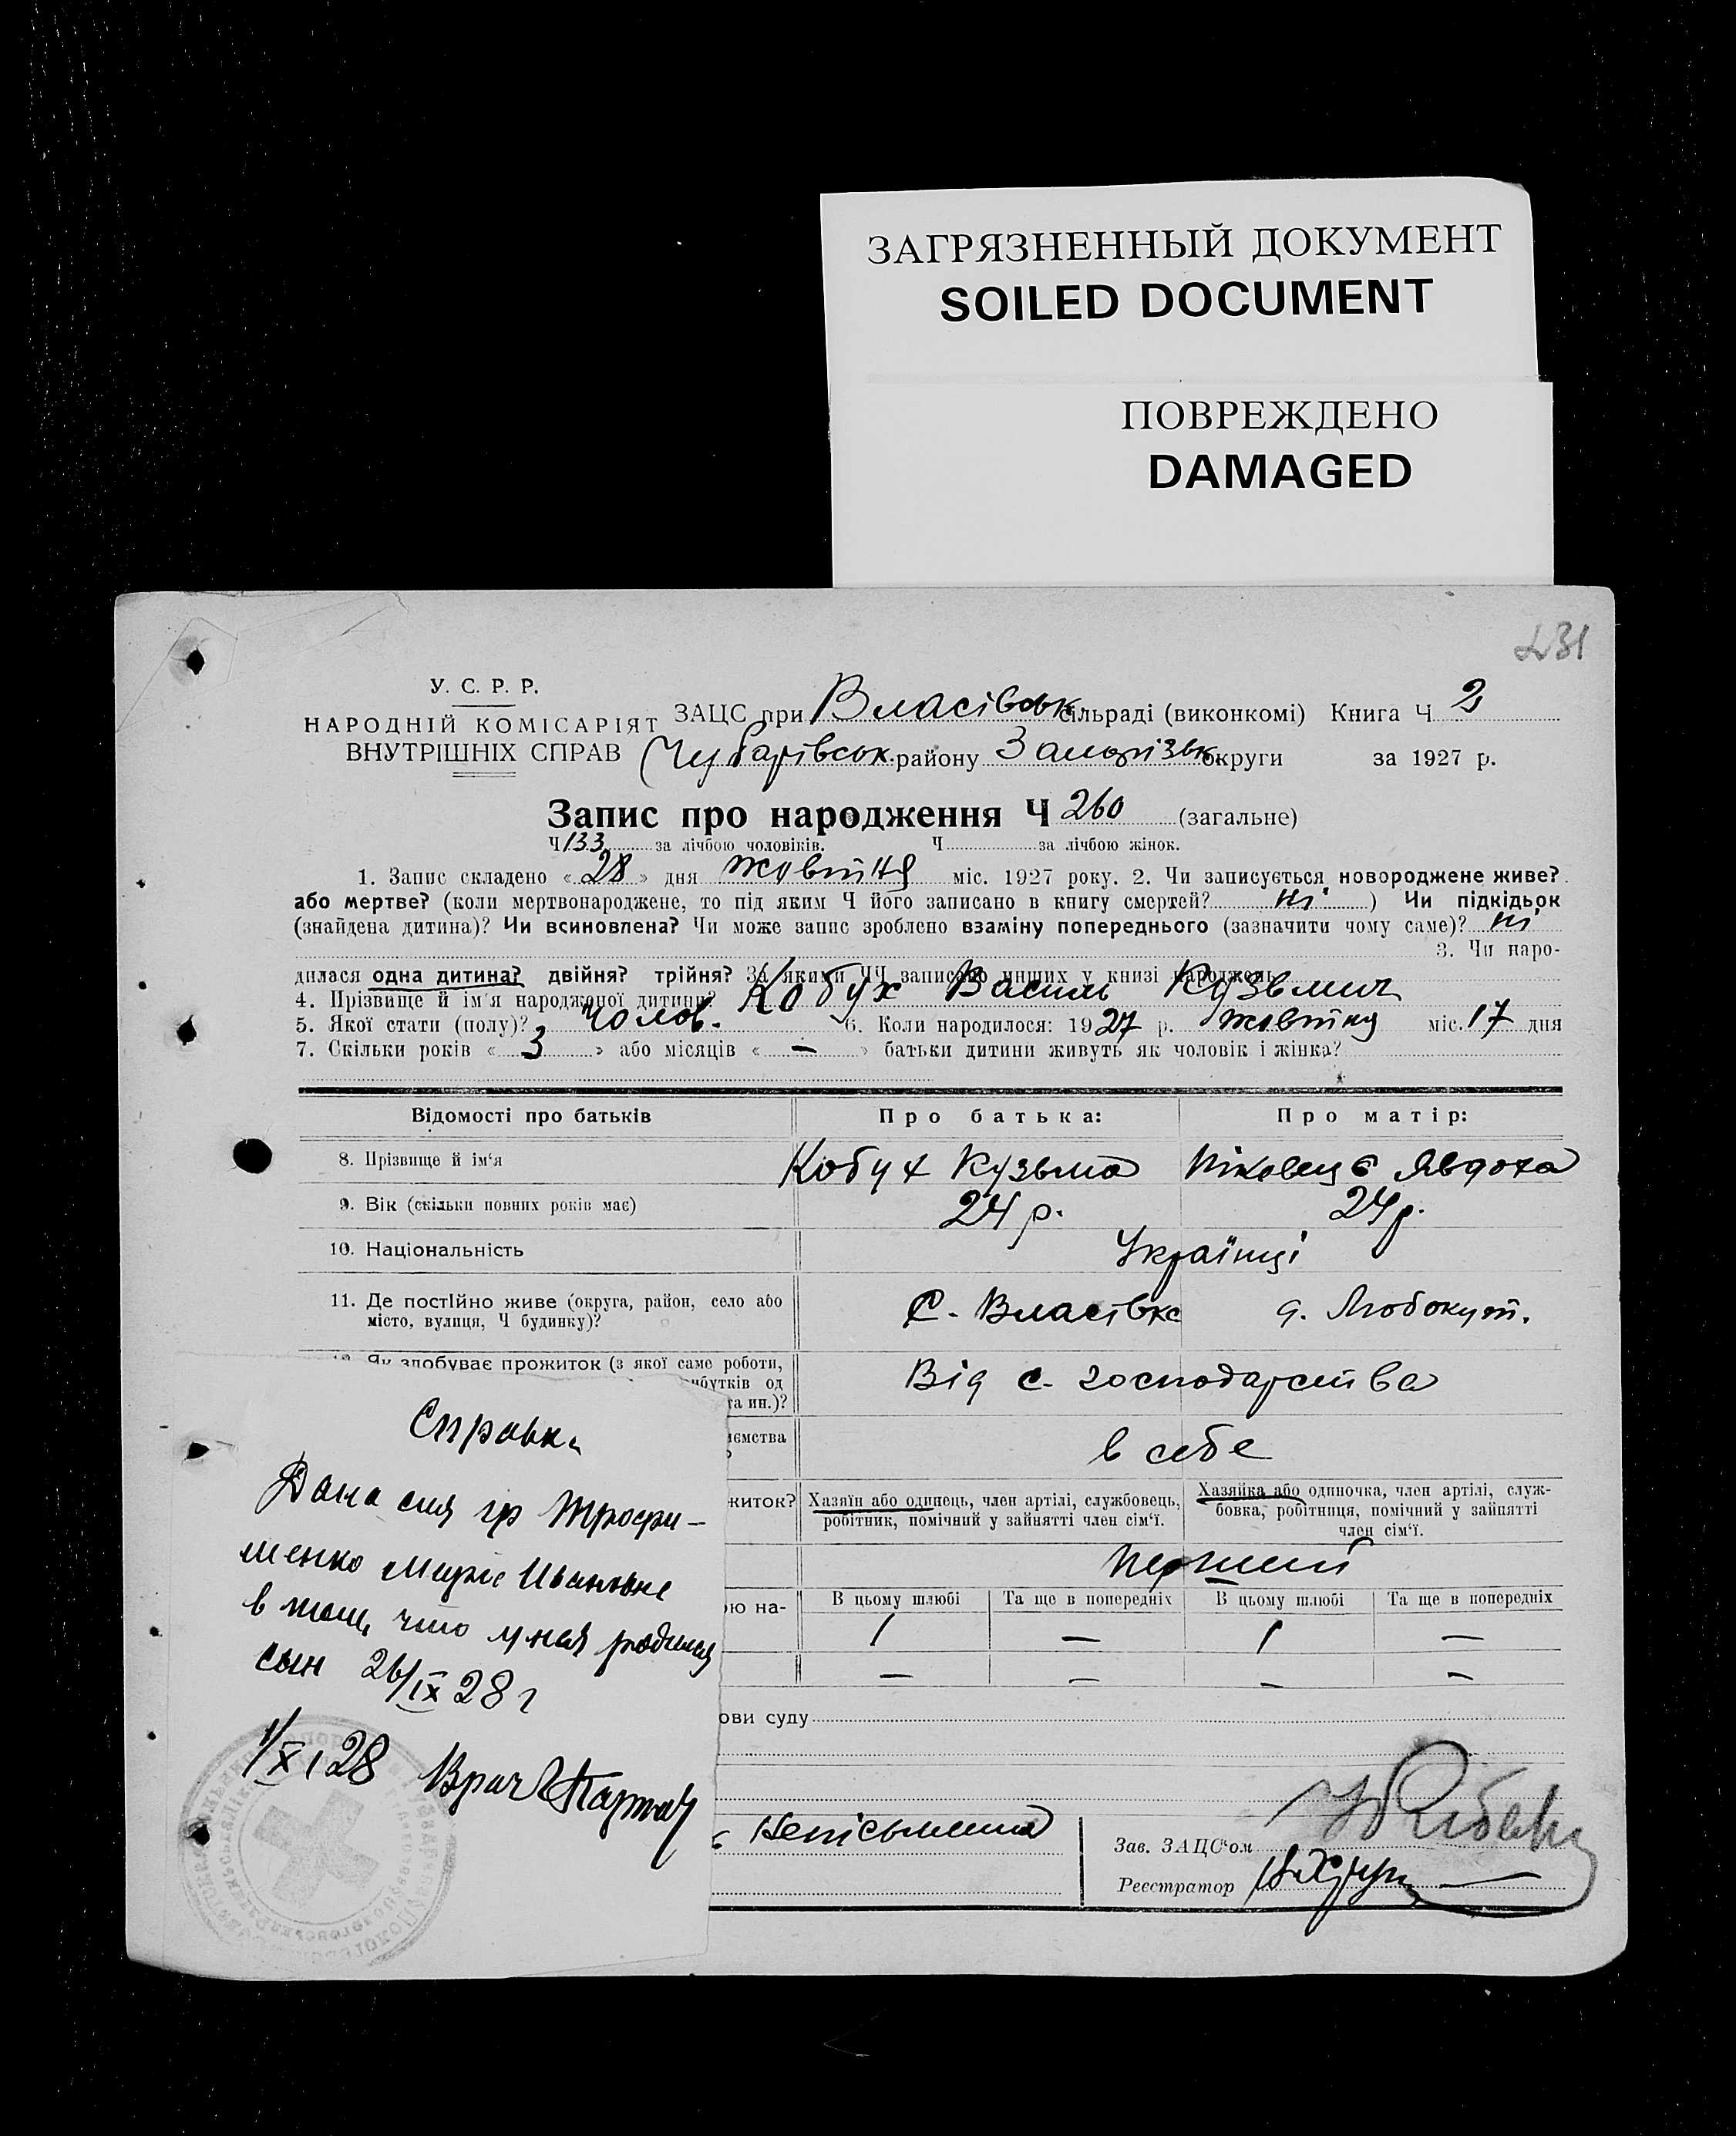 ЗАГРЯЗНЕННЫЙ ДОКУМЕНТ
SOILED DOCUMENT
ПОВРЕЖДЕНО
DAMAGED
231
У. С. Р. Р.
НАРОДНІЙ КОМІСАРІЯТ
ВНУТРІШНІХ СПРАВ
ЗАЦС при Власівськ. сільраді (виконкомі) Книга Ч 2
Чубарівськ. району Запорізьк. округи за 1927 р.
Запис про народження Ч 260 (загальне)
Ч 133 за лічбою чоловіків. Ч за лічбою жінок.
1. Запис складено « 28 » дня жовтня міс. 1927 року. 2. Чи записується новороджене живе?
або мертве? (коли мертвонароджене, то під яким Ч його записано в книгу смертей? ні ) Чи підкідьок
(знайдена дитина)? Чи всиновлена? Чи може запис зроблено взаміну попереднього (зазначити чому саме)? ні
3. Чи наро-
дилася одна дитина? двійня? трійня? За якими ЧЧ записано инших у книзі народжень
4. Прізвище й ім'я народженої дитини? Кобух Василь Кузьмич
5. Якої стати (полу)? Чолов. 6. Коли народилося: 1927 р. жовтня міс. 17 дня
7. Скільки років « 3 » або місяців « — » батьки дитини живуть як чоловік і жінка?
Відомості про батьків Про батька: Про матір:
8. Прізвище й ім'я Кобух Кузьма Явдоха
9. Вік (скільки повних років має) 24 р. 24 р.
10. Національність Українці
11. Де постійно живе (округа, район, село або
місто, вулиця, Ч будинку)? С. Власівка
Як здобуває прожиток (з якої саме роботи,
од
та ин.)? Від с. господарства
в себе
житок? Хазяїн або одинець, член артілі, службовець,
робітник, помічний у зайнятті член сім'ї.
Хазяйка або одиночка, член артілі, служ-
бовка, робітниця, помічний у зайнятті
член сім'ї.
перший
ю на- В цьому шлюбі Та ще в попередніх В цьому шлюбі Та ще в попередніх
1 — 1 —
— — — —
ови суду
Непісьменна
Зав. ЗАЦС'ом
Реєстратор
Справка
Дана сия гр Трофи-
менко Марие Ивановне
в том, что у ней родился
сын 26/IX 28 г
1/XI 28 Врач